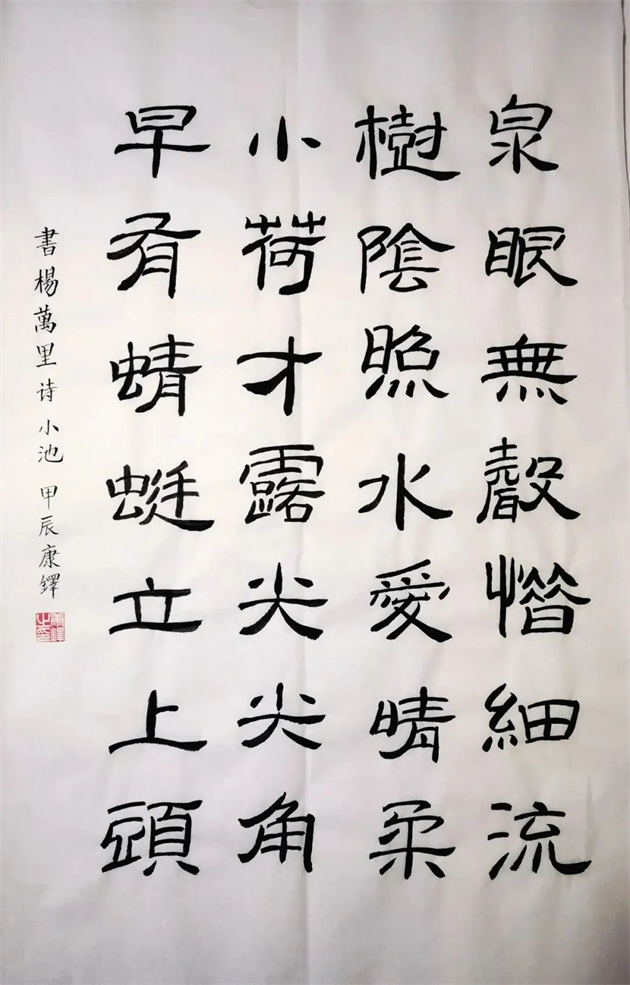 泉眼無聲惜細流
樹陰照水愛晴柔
小荷才露尖尖角
早有蜻蜓立上頭
書楊萬里诗小池甲辰康鐸